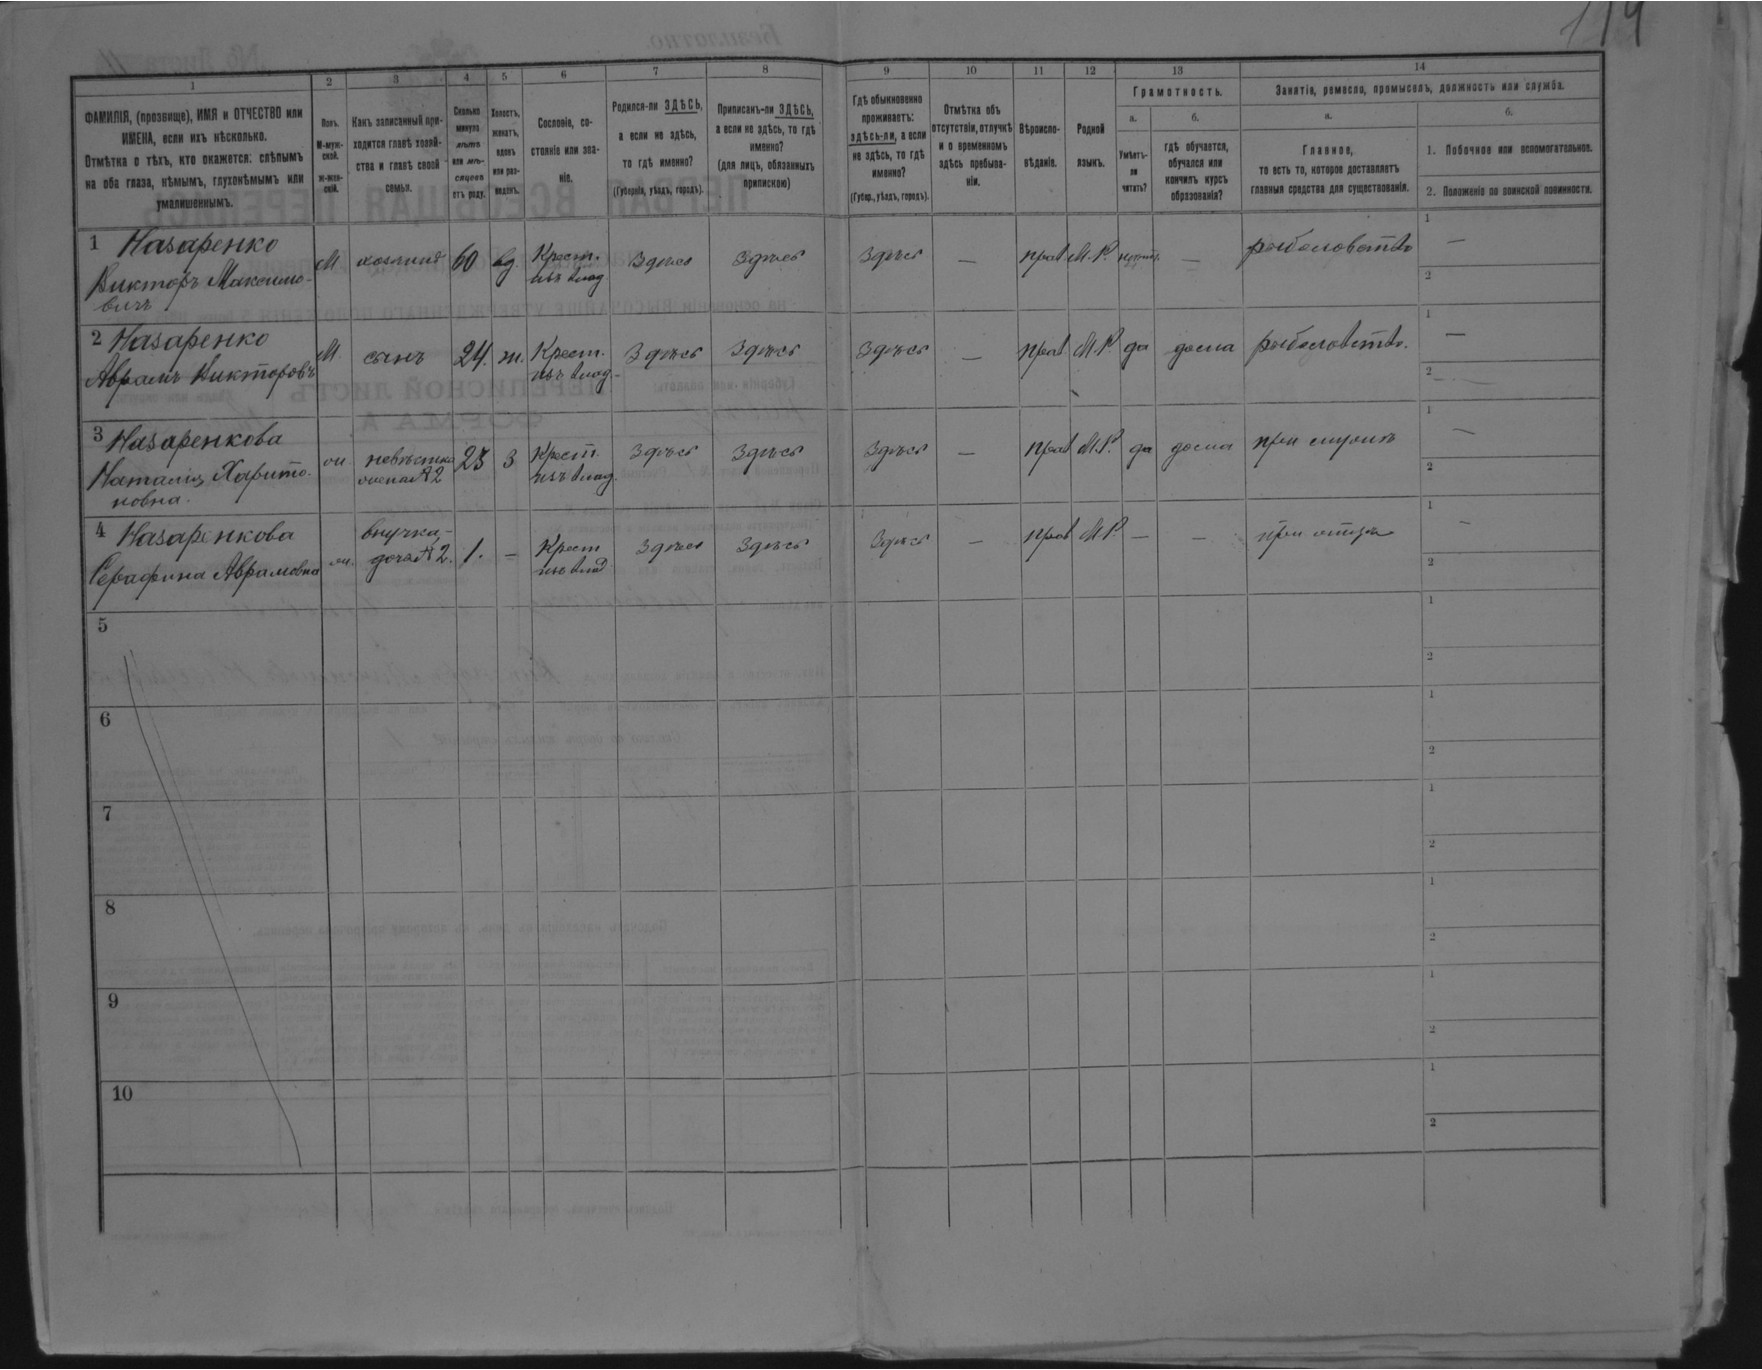 119
1
ФАМИЛІЯ, (прозвище), ИМЯ и ОТЧЕСТВО или
ИМЕНА, если ихъ нѣсколько.
Отмѣтка о тѣхъ, кто окажется: слѣпымъ
на оба глаза, нѣмымъ, глухонѣмымъ или
умалишеннымъ.
2
Полъ.
М-муж-
ской.
ж-жен-
скій.
3
Какъ записанный при-
ходится главѣ хозяй-
ства и главѣ своей
семьи.
4
Сколько
минуло
лѣтъ
или мѣ-
сяцевъ
отъ роду.
5
Холостъ,
женатъ,
вдовъ
или раз-
веденъ.
6
Сословіе, со-
стояніе или зва-
ніе.
7
Родился-ли ЗДѢСЬ,
а если не здѣсь,
то гдѣ именно?
(Губернія, уѣздъ, городъ).
8
Приписанъ-ли ЗДѢСЬ,
а если не здѣсь, то гдѣ
именно?
(для лицъ, обязанныхъ
припискою)
9
Гдѣ обыкновенно
проживаетъ:
здѣсь-ли, а если
не здѣсь, то гдѣ
именно?
(Губер., уѣздъ, городъ).
10
Отмѣтка объ
отсутствіи, отлучкѣ
и о временномъ
здѣсь пребыва-
ніи.
11
Вѣроиспо-
вѣданіе.
12
Родной
языкъ.
13
Грамотность.
а.
Умѣетъ-
ли
читать?
б.
гдѣ обучается,
обучался или
кончилъ курсъ
образованія?
14
Занятія, ремесло, промыселъ, должность или служба.
а.
Главное,
то есть то, которое доставляетъ
главныя средства для существованія.
б.
1. Побочное или вспомогательное.
2. Положеніе по воинской повинности.
1 Назаренко
Викторъ Максимо-
вичъ
М хозяинъ 60 вд Крест.
изъ влад
Здѣсь Здѣсь Здѣсь — прав М.Р. — рыболовство
1 —
2
2 Назаренко
Аврамъ Викторовъ
М. сынъ 24. ж. Крест.
изъ влад-
Здѣсь Здѣсь Здѣсь — прав М.Р. да дома рыболовство.
1 —
2
3 Назаренкова
Наталія Харито-
новна.
невѣстка
23 З Крест.
изъ влад.
Здѣсь Здѣсь Здѣсь — прав М.Р. да дома при мужѣ
1 —
2
4 Назаренкова
Серафима Аврамовна
внучка,-
дочь №2. 1. — Крест
изъ влад
Здѣсь Здѣсь Здѣсь — прав М.Р. — — при отцѣ
1 —
2
5
1
2
6
1
2
7
1
2
8
1
2
9
1
2
10
1
2